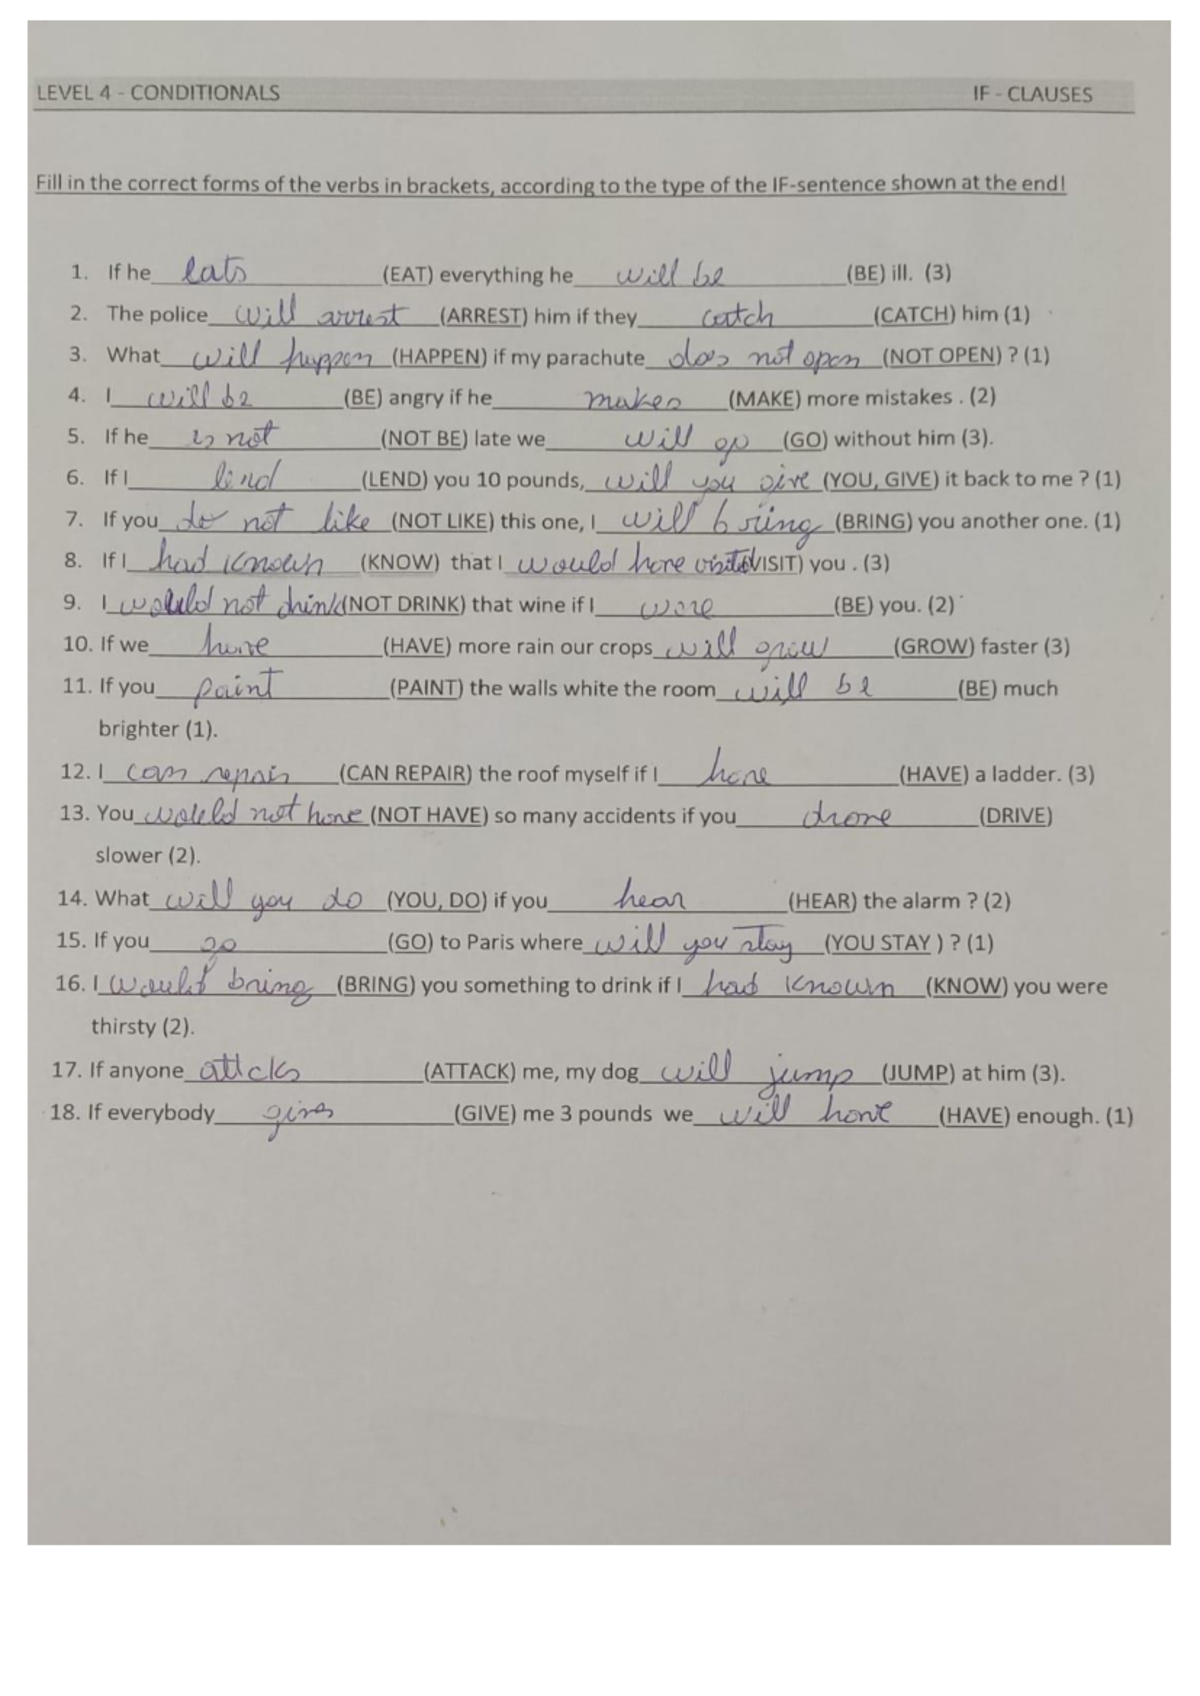 LEVEL 4 - CONDITIONALS IF - CLAUSES
Fill in the correct forms of the verbs in brackets, according to the type of the IF-sentence shown at the end!
1. If he eats (EAT) everything he will be (BE) ill. (3)
2. The police will arrest (ARREST) him if they catch (CATCH) him (1)
3. What will happen (HAPPEN) if my parachute does not open (NOT OPEN) ? (1)
4. I will be (BE) angry if he makes (MAKE) more mistakes . (2)
5. If he is not (NOT BE) late we will go (GO) without him (3).
6. If I lend (LEND) you 10 pounds, will you give (YOU, GIVE) it back to me ? (1)
7. If you do not like (NOT LIKE) this one, I will bring (BRING) you another one. (1)
8. If I had known (KNOW) that I would have visited (VISIT) you . (3)
9. I would not drink (NOT DRINK) that wine if I were (BE) you. (2)
10. If we have (HAVE) more rain our crops will grow (GROW) faster (3)
11. If you paint (PAINT) the walls white the room will be (BE) much
brighter (1).
12. I can repair (CAN REPAIR) the roof myself if I have (HAVE) a ladder. (3)
13. You would not have (NOT HAVE) so many accidents if you drove (DRIVE)
slower (2).
14. What will you do (YOU, DO) if you hear (HEAR) the alarm ? (2)
15. If you go (GO) to Paris where will you stay (YOU STAY ) ? (1)
16. I would bring (BRING) you something to drink if I had known (KNOW) you were
thirsty (2).
17. If anyone attcks (ATTACK) me, my dog will jump (JUMP) at him (3).
18. If everybody gives (GIVE) me 3 pounds we will have (HAVE) enough. (1)